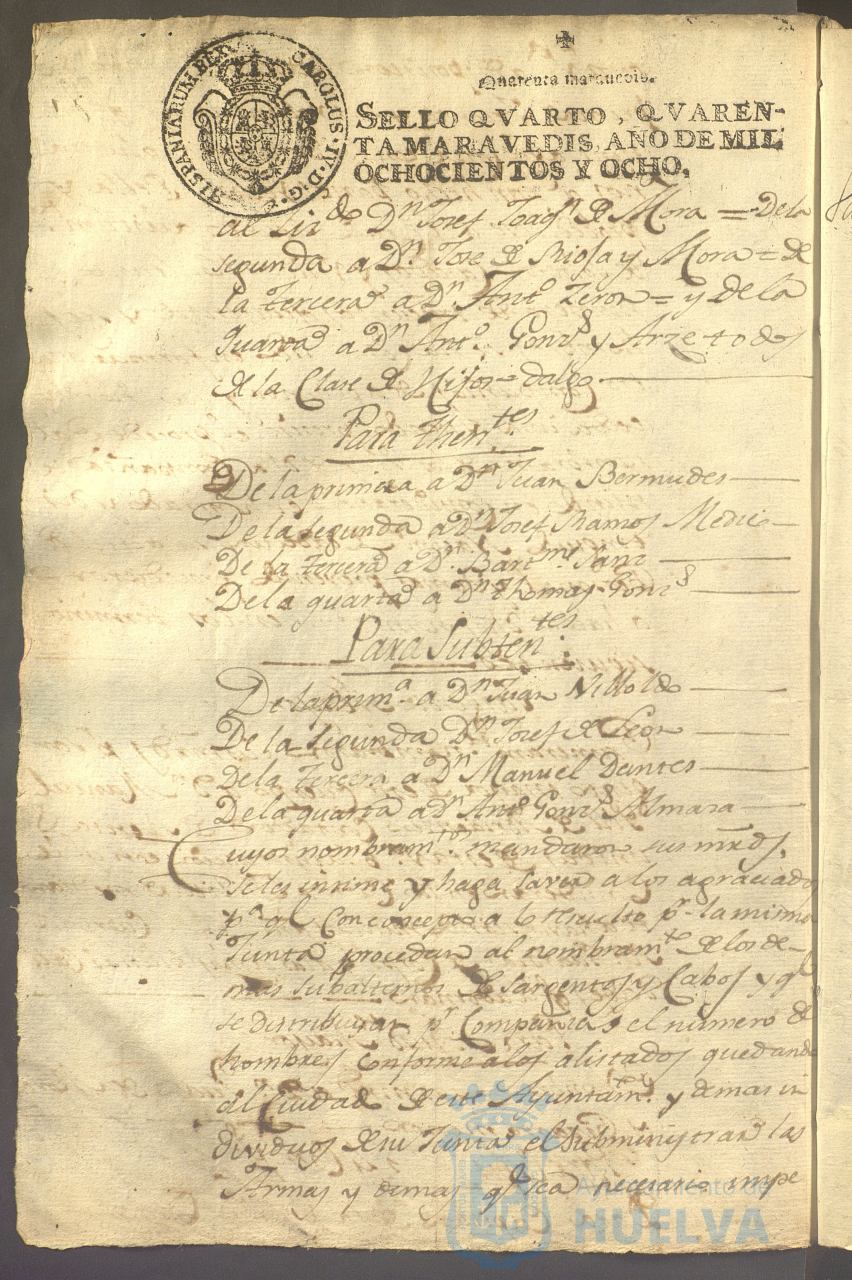 HISPANIARUM REX CAROLUS · IV · D · G ·
Quarenta maravedis.
SELLO QVARTO, QVAREN-
TA MARAVEDIS, AÑO DE MIL
OCHOCIENTOS Y OCHO.
al Liz.do Dn Josef Joaqn de Mora = De la
segunda a Dn Jose de Rioja y Mora = de
la tercera a Dn Anto Zeron = y de la
quarta a Dn Anto Gonzs y Arze todos
de la Clase de Hijos = dalgo
Para Thentes
De la primera a Dn Juan Bermudes
De la segunda a Dn Josef Ramos
De la tercera a Dn Barme Sanz
De la quarta a Dn Thomas Gonzs
Para Subtentes
De la prima a Dn Juan
De la segunda Dn Josef de Leon
De la tercera a Dn Manuel Dantes
De la quarta a Dn Anto Gonzs
Cuyos nombramtos mandaron sus mrds.
se les intime y haga saver a los agraciados
pa qe Con concepto a lo resuelto pr la misma
Junta procedan al nombramto de los de-
mas subalternos de Sargentos y Cabos y qe
se distribuyan pr Compañias el número de
hombres Conforme a los alistados quedando
al Cuidado de este Ayuntam. y demas in
dividuos de su Junta el subministrar las
Armas y demas qe sea necesario
Ayuntamiento de
HUELVA